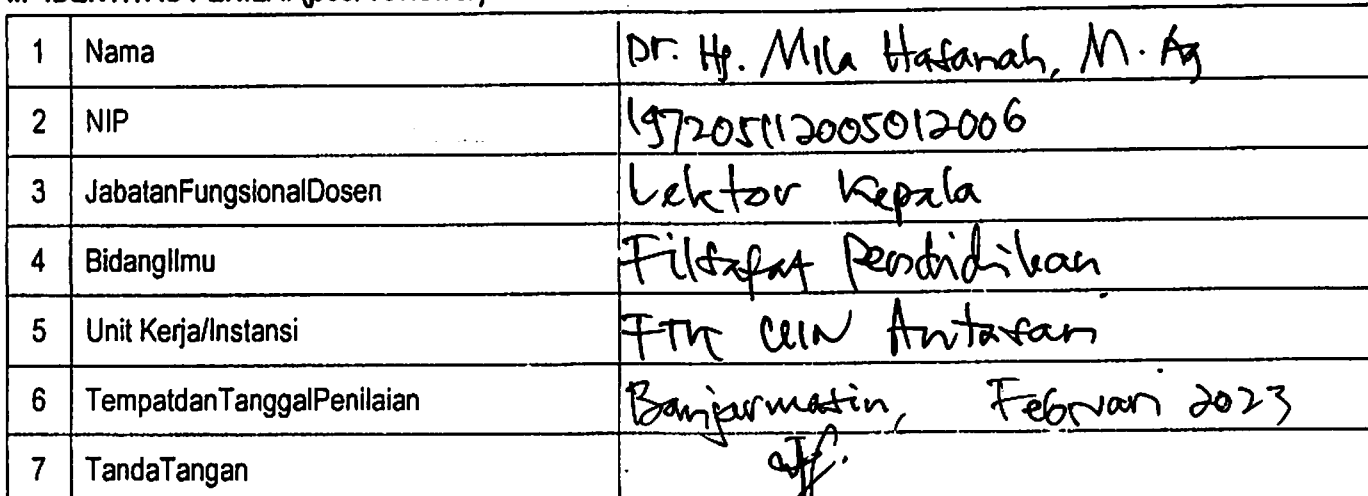 1 Nama Dr. Hj. Mila Hasanah, M. Ag
2 NIP 197205112005012006
3 JabatanFungsionalDosen Lektor Kepala
4 BidangIlmu Filsafat Pendidikan
5 Unit Kerja/Instansi FTK UIN Antasari
6 TempatdanTanggalPenilaian Banjarmasin, Februari 2023
7 TandaTangan